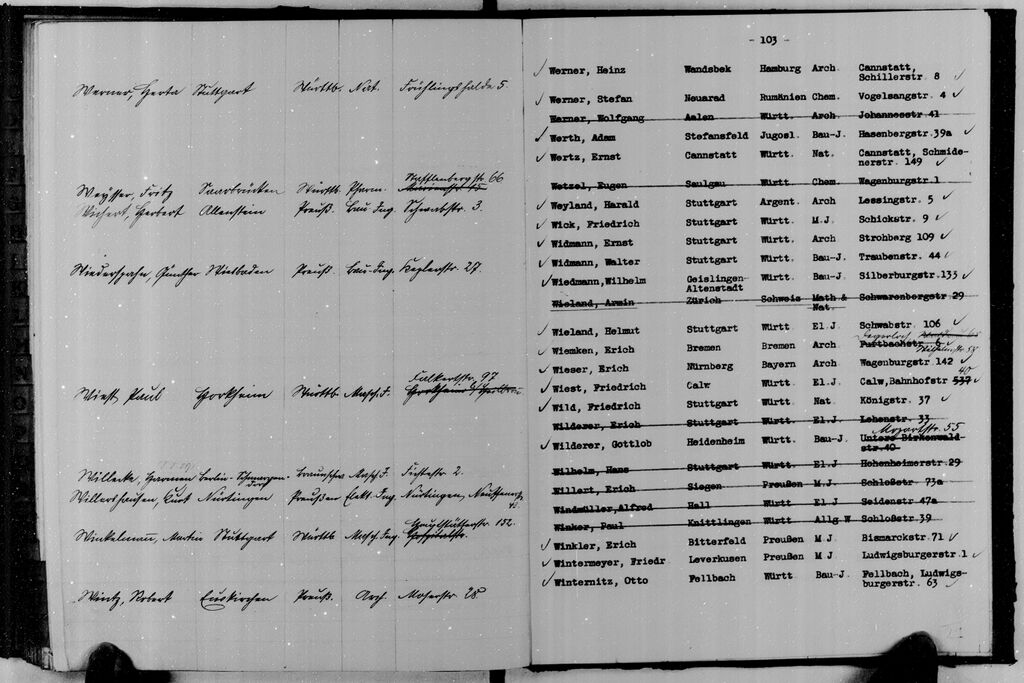 Werner, Herta Stuttgart Württb. Nat. Frühlingshalde 5.
Stafflenbergstr. 66
Weysser, Fritz Saarbrücken Württb. Pharm.
Wichert, Herbert Allenstein Preuß. Bau-Ing. Schwabstr. 3.
Wiederspahn, Günther Wiesbaden Preuß. Bau-Ing. Keplerstr. 27.
Falkertstr. 97
Wiest Paul Horkheim Württb. Masch. J. Horkheim b/Heilbronn
Willecke, Hermann Berlin-Schmargendorf Braunschw. Masch J. 2.
Willershausen, Curt Nürtingen Preußen Elekt. Ing. Nürtingen,
Hauptstätterstr. 152.
Winkelmann, Martin Stuttgart Württb Masch. Ing. Hospitalstr.
Wintz, Robert Euskirchen Preuß. Arch. Moserstr. 28.
- 103 -
✓ Werner, Heinz Wandsbek Hamburg Arch. Cannstatt,
Schillerstr. 8 ✓
✓ Werner, Stefan Neuarad Rumänien Chem. Vogelsangstr. 4 ✓
Werner, Wolfgang Aalen Württ. Arch. Johannesstr 41
✓ Werth, Adam Stefansfeld Jugosl. Bau-J. Hasenbergstr.39a ✓
✓ Wertz, Ernst Cannstatt Württ. Nat. Cannstatt, Schmide-
nerstr. 149 ✓
Wetzel, Eugen Saulgau Württ Chem. Wagenburgstr.1
✓ Weyland, Harald Stuttgart Argent. Arch Lessingstr. 5 ✓
✓ Wick, Friedrich Stuttgart Württ. M.J. Schickstr. 9 ✓
✓ Widmann, Ernst Stuttgart Württ. Arch Strohberg 109 ✓
✓ Widmann, Walter Stuttgart Württ. Bau-J. Traubenstr. 44 ✓
✓ Wiedmann,Wilhelm Geislingen-
Altenstadt Württ. Bau-J. Silberburgstr.133 ✓
Wieland, Armin Zürich Schweiz Math &
Nat. Schwarenbergstr 29
✓ Wieland, Helmut Stuttgart Württ El.J Schwabstr. 106 ✓
Degerloch
✓ Wiemken, Erich Bremen Bremen Arch Furtbachstr. 6
✓ Wieser, Erich Nürnberg Bayern Arch Wagenburgstr 142 ✓
40
✓ Wiest, Friedrich Calw Württ. El.J. Calw,Bahnhofstr 537 ✓
✓ Wild, Friedrich Stuttgart Württ Nat. Königstr. 37 ✓
Wilderer, Erich Stuttgart Württ El.J Lehenstr. 33
Mozartstr. 55
✓ Wilderer, Gottlob Heidenheim Württ. Bau-J. Untere Birkenwald-
str.40
Wilhelm, Hans Stuttgart Württ. El.J Hohenheimerstr 29
Willert, Erich Siegen Preußen M.J. Schloßstr. 73a
Windmüller,Alfred Hall Württ El J Seidenstr 47a
Winker, Paul Knittlingen Württ Allg.W Schloßstr 39
✓ Winkler, Erich Bitterfeld Preußen M J Bismarckstr 71 ✓
✓ Wintermeyer, Friedr Leverkusen Preußen M J. Ludwigsburgerstr 1 ✓
✓ Winternitz, Otto Fellbach Württ Bau-J. Fellbach, Ludwigs-
burgerstr. 63 ✓